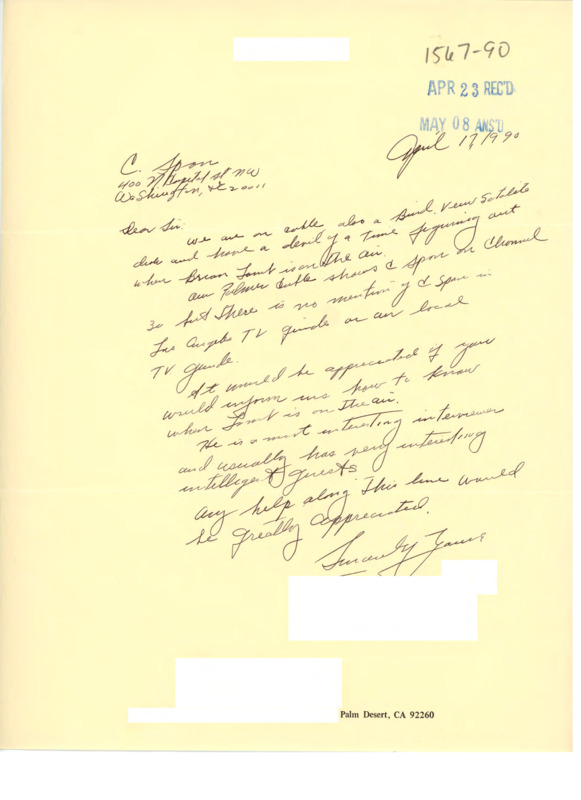 1567-90
APR 23 REC'D
MAY 08 ANS'D
April 17, 1990
C. Span
400 N Capitol st NW
Washington, DC 20011
Dear Sir.
We are on cable also a Bird View Satelite
dish and have a devil of a time figuring out
when Brian Lamb is on the air.
our Palmer Cable shows C Span on Channel
30 but there is no mention of C Span in
Los Angeles TV guide or our local
TV guide.
It would be appreciated if you
would inform us how to know
when Lamb is on the air.
He is a most interesting interviewer
and usually has very interesting
intelligent guests
any help along this line would
be greatly appreciated.
Sincerely Yours
Palm Desert, CA 92260